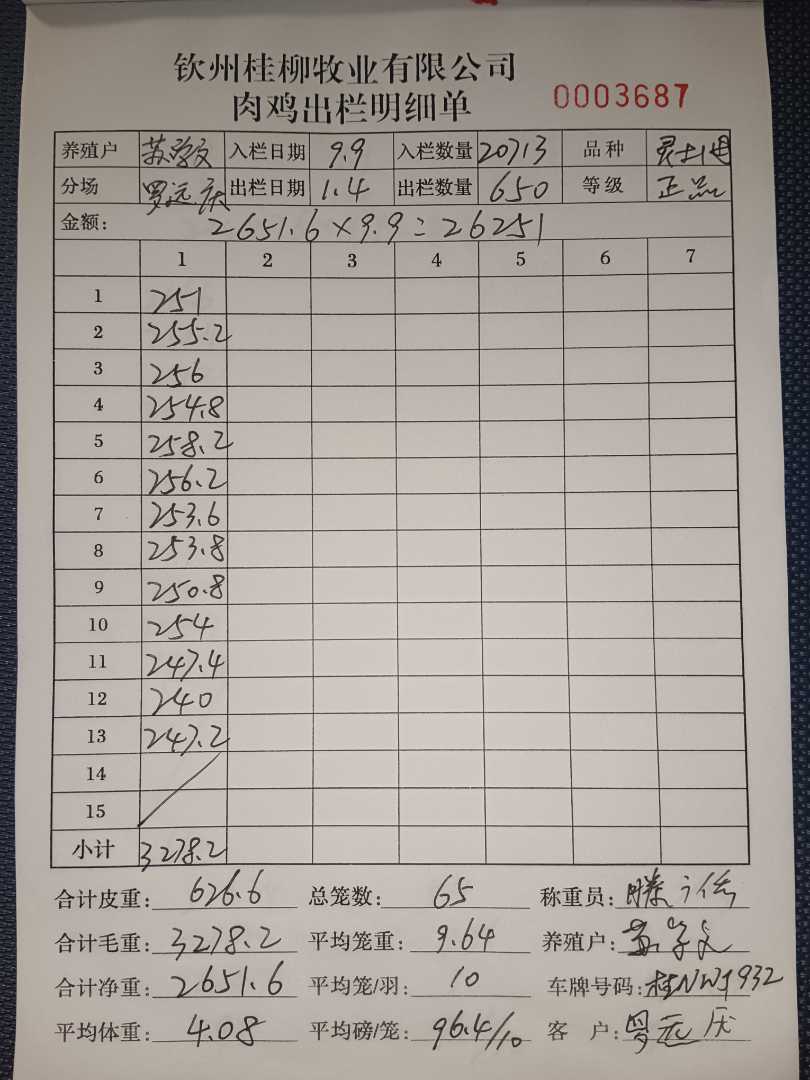 钦州桂柳牧业有限公司
肉鸡出栏明细单 0003687
养殖户 苏学文 入栏日期 9.9 入栏数量 20713 品种 灵土1组
分场 罗远庆 出栏日期 1.4 出栏数量 650 等级 正品
金额: 2651.6×9.9=26251
1 2 3 4 5 6 7
1 251
2 255.2
3 256
4 254.8
5 258.2
6 256.2
7 253.6
8 253.8
9 250.8
10 254
11 247.4
12 240
13 247.2
14
15
小计 3278.2
合计皮重: 626.6 总笼数: 65 称重员: 滕
合计毛重: 3278.2 平均笼重: 9.64 养殖户: 苏学文
合计净重: 2651.6 平均笼/羽: 10 车牌号码: 桂NW1932
平均体重: 4.08 平均磅/笼: 96.4/10 客户: 罗远庆